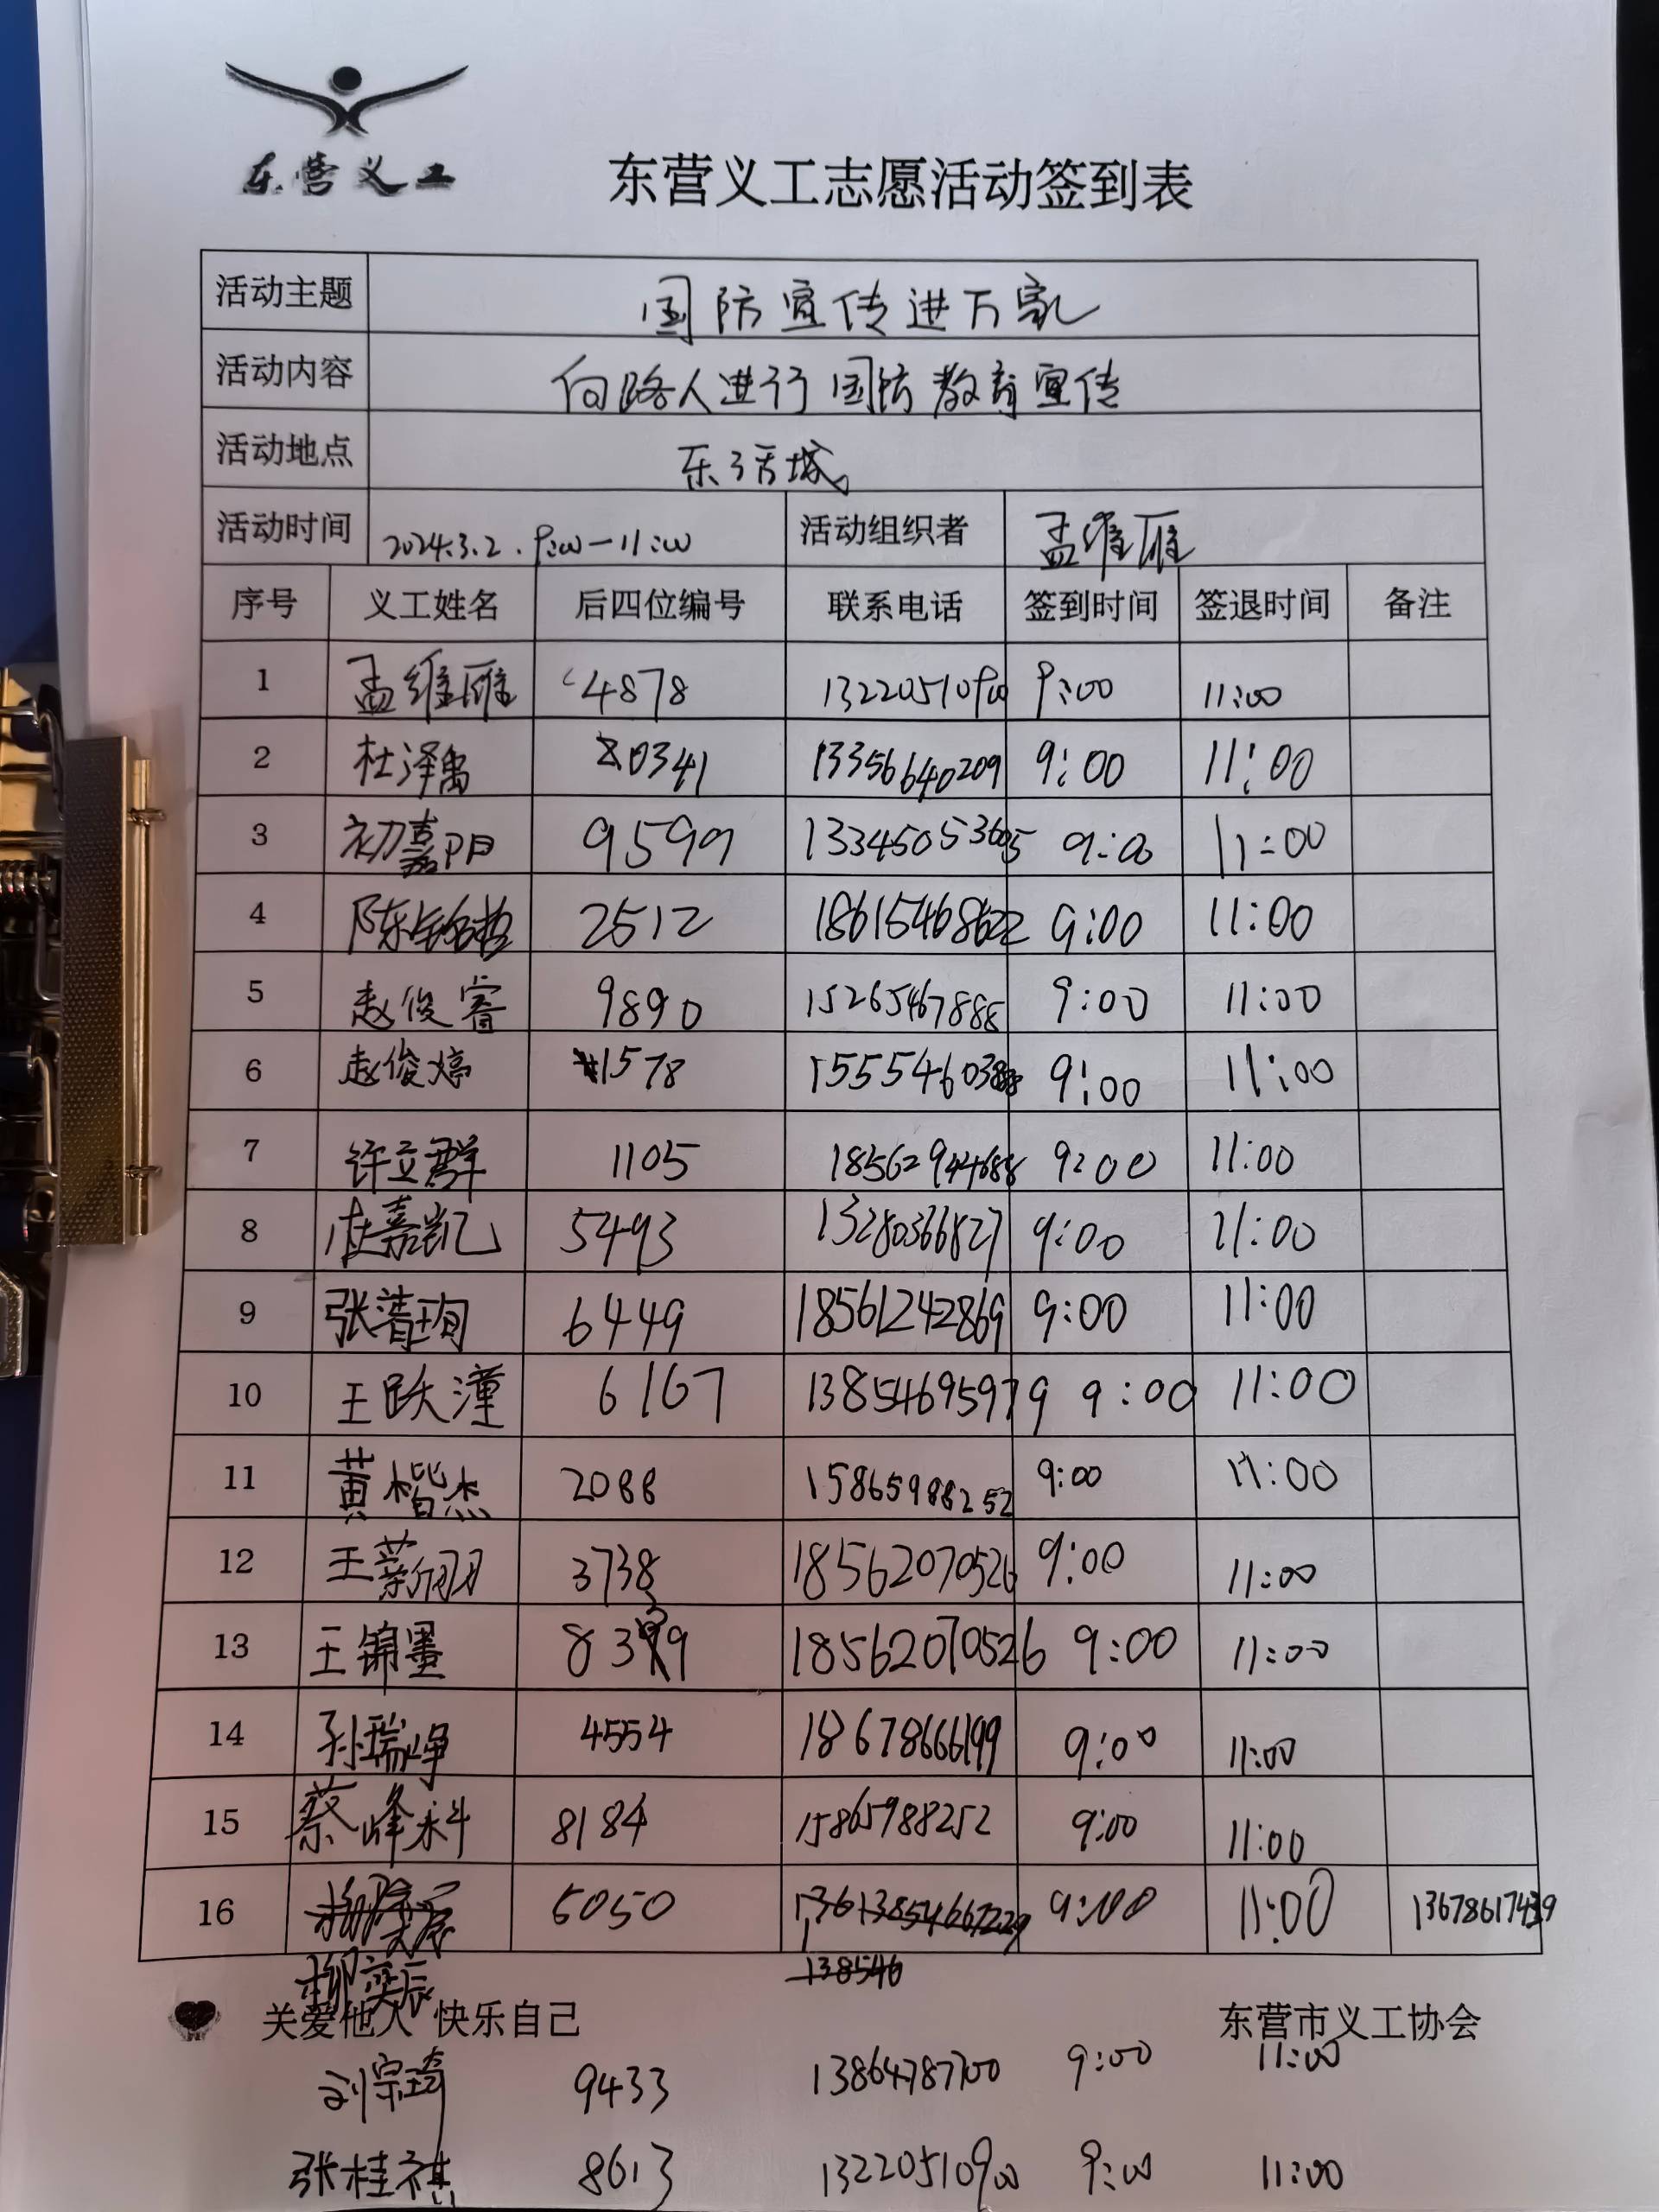 东营义工
东营义工志愿活动签到表
活动主题 国防宣传进万家
活动内容 向路人进行国防教育宣传
活动地点 东活城。
活动时间 2024.3.2. 9:00—11:00 活动组织者 孟维雁
序号 义工姓名 后四位编号 联系电话 签到时间 签退时间 备注
1 孟维雁 4878 13220510900 9:00 11:00
2 杜泽禹 0341 13356640209 9:00 11:00
3 初嘉阳 9599 13345053605 9:00 11:00
4 陈铭哲 2512 18615468622 9:00 11:00
5 赵俊睿 9890 15265467888 9:00 11:00
6 赵俊婷 1578 9:00 11:00
7 许立群 1105 18562944688 9:00 11:00
8 杜嘉凯 5493 13280366827 9:00 11:00
9 张清珣 6449 18561242869 9:00 11:00
10 王跃潼 6167 13854695979 9:00 11:00
11 黄楷杰 2088 15865988252 9:00 11:00
12 王新羽 3738 18562070526 9:00 11:00
13 王锦墨 18562070526 9:00 11:00
14 孙瑞峥 4554 18678666199 9:00 11:00
15 蔡峰科 8184 15865988252 9:00 11:00
16 5050 9:00 11:00 13678617439
柳奕辰 138546
关爱他人 快乐自己 东营市义工协会
刘宗琦 9433 13864787700 9:00 11:00
张桂祺 8613 13220510900 9:00 11:00